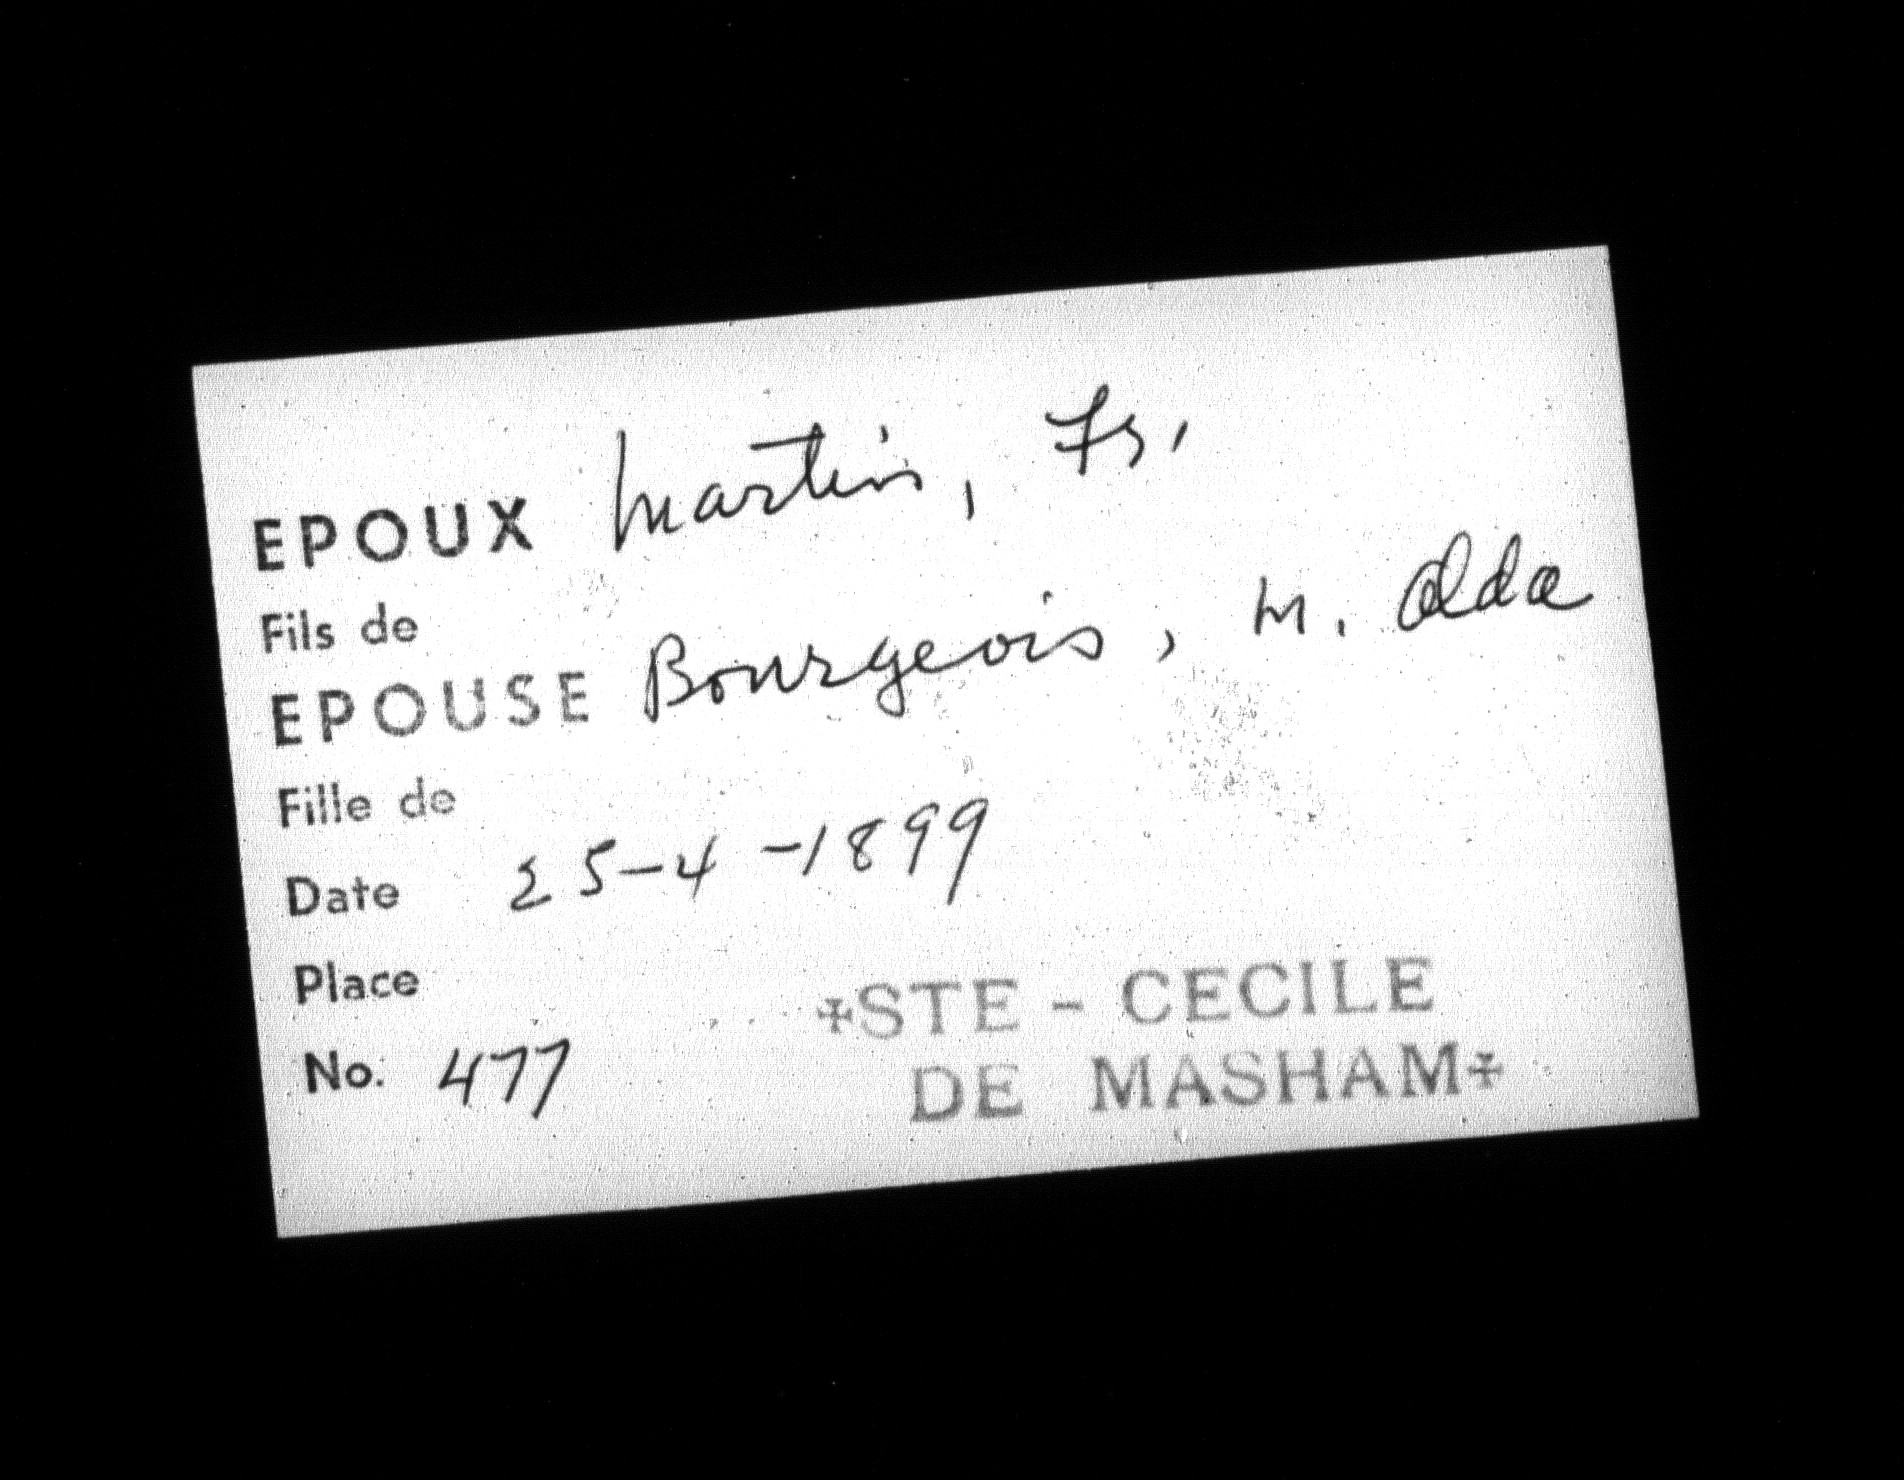 EPOUX Martin, Fs.
Fils de
EPOUSE Bourgeois, M. Alda
Fille de
Date 25-4-1899
Place
No. 477
✠STE - CECILE
DE MASHAM✠